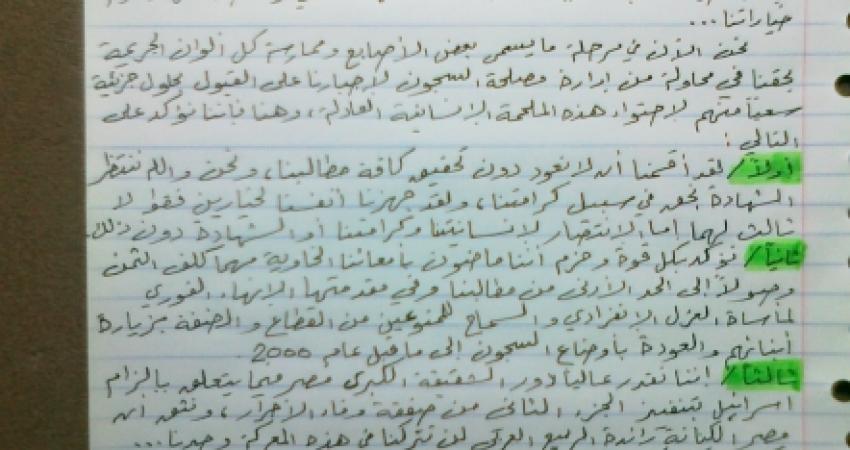 خياراتنا...
نحن الآن في مرحلة ما يسمى بعض الأصابع وممارسة كل ألوان الجريمة
بحقنا في محاولة من إدارة مصلحة السجون لإجبارنا على القبول بحلول جزئية
سعياً منهم لاحتواء هذه الملحمة الإنسانية العادلة، وهنا فإننا نؤكد على
التالي:
أولاً/ لقد أقسمنا أن لا نعود دون تحقيق كافة مطالبنا، ونحن والله ننتظر
الشهادة بحق في سبيل كرامتنا، ولقد جهزنا أنفسنا لخيارين فقط لا
ثالث لهما إما الانتصار لإنسانيتنا وكرامتنا أو الشهادة دون ذلك.
ثانياً/ نؤكد بكل قوة وحزم أننا ماضون بأمعائنا الخاوية مهما كلف الثمن
وصولاً إلى الحد الأدنى من مطالبنا وفي مقدمتها الإنهاء الفوري
لمأساة العزل الانفرادي والسماح للممنوعين من القطاع والضفة بزيارة
أبنائهم والعودة بأوضاع السجون إلى ما قبل عام 2000.
ثالثاً/ إننا نقدر عالياً دور الشقيقة الكبرى مصر فيما يتعلق بإلزام
اسرائيل بتنفيذ الجزء الثاني من صفقة وفاء الأحرار، ونثق أن
مصر الكنانة رائدة الربيع العربي لن تتركنا في هذه المعركة وحدنا...